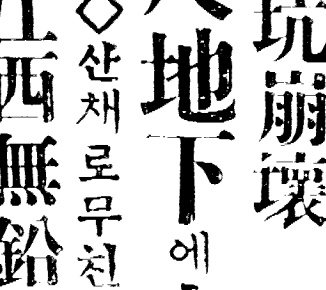 坑崩壞
地下에
◇산채 로무친
西無鉛